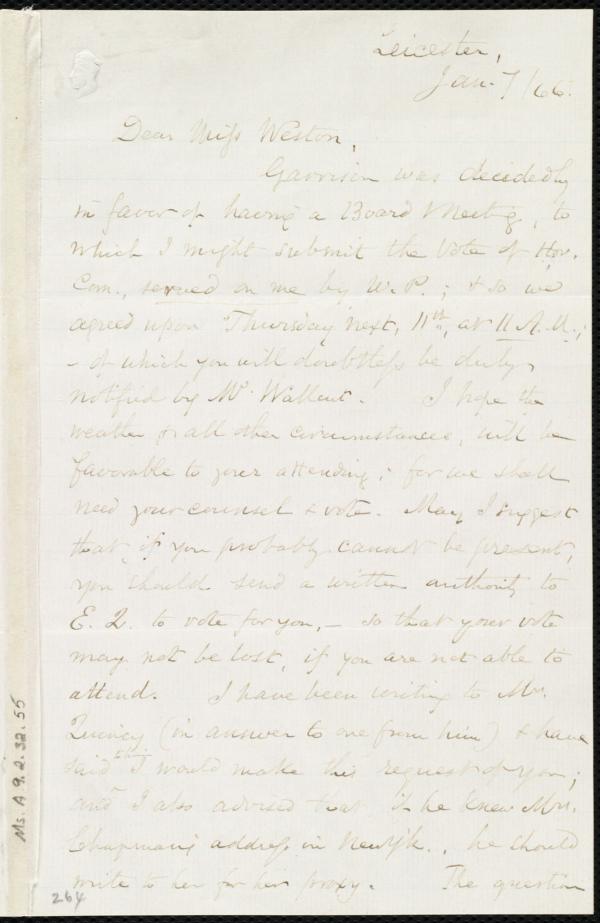 Leicester,
Jan. 7/66.
Dear Miss Weston,
Garrison was decidedly
in favor of having a Board Meeting, to
which I might submit the Vote of Hov.
Com., served on me by W. P.; & so we
agreed upon Thursday next, 11th, at 11 A.M.;
- of which you will doubtless be duly
notified by Mr. Wallcut. I hope the
weather, & all other circumstances, will be
favorable to your attending; for we shall
need your counsel & vote. May I suggest
that, if you probably cannot be present,
you should send a written authority to
E. Q. to vote for you, - so that your vote
may not be lost, if you are not able to
attend. I have been writing to Mr.
Quincy (in answer to one from him) & have
said I would make this request of you;
and I also advised that if he knew Mrs.
Chapman's address in New Yk., he should
write to her for her proxy. The question
Ms. A 9. 2. 32. 55
264